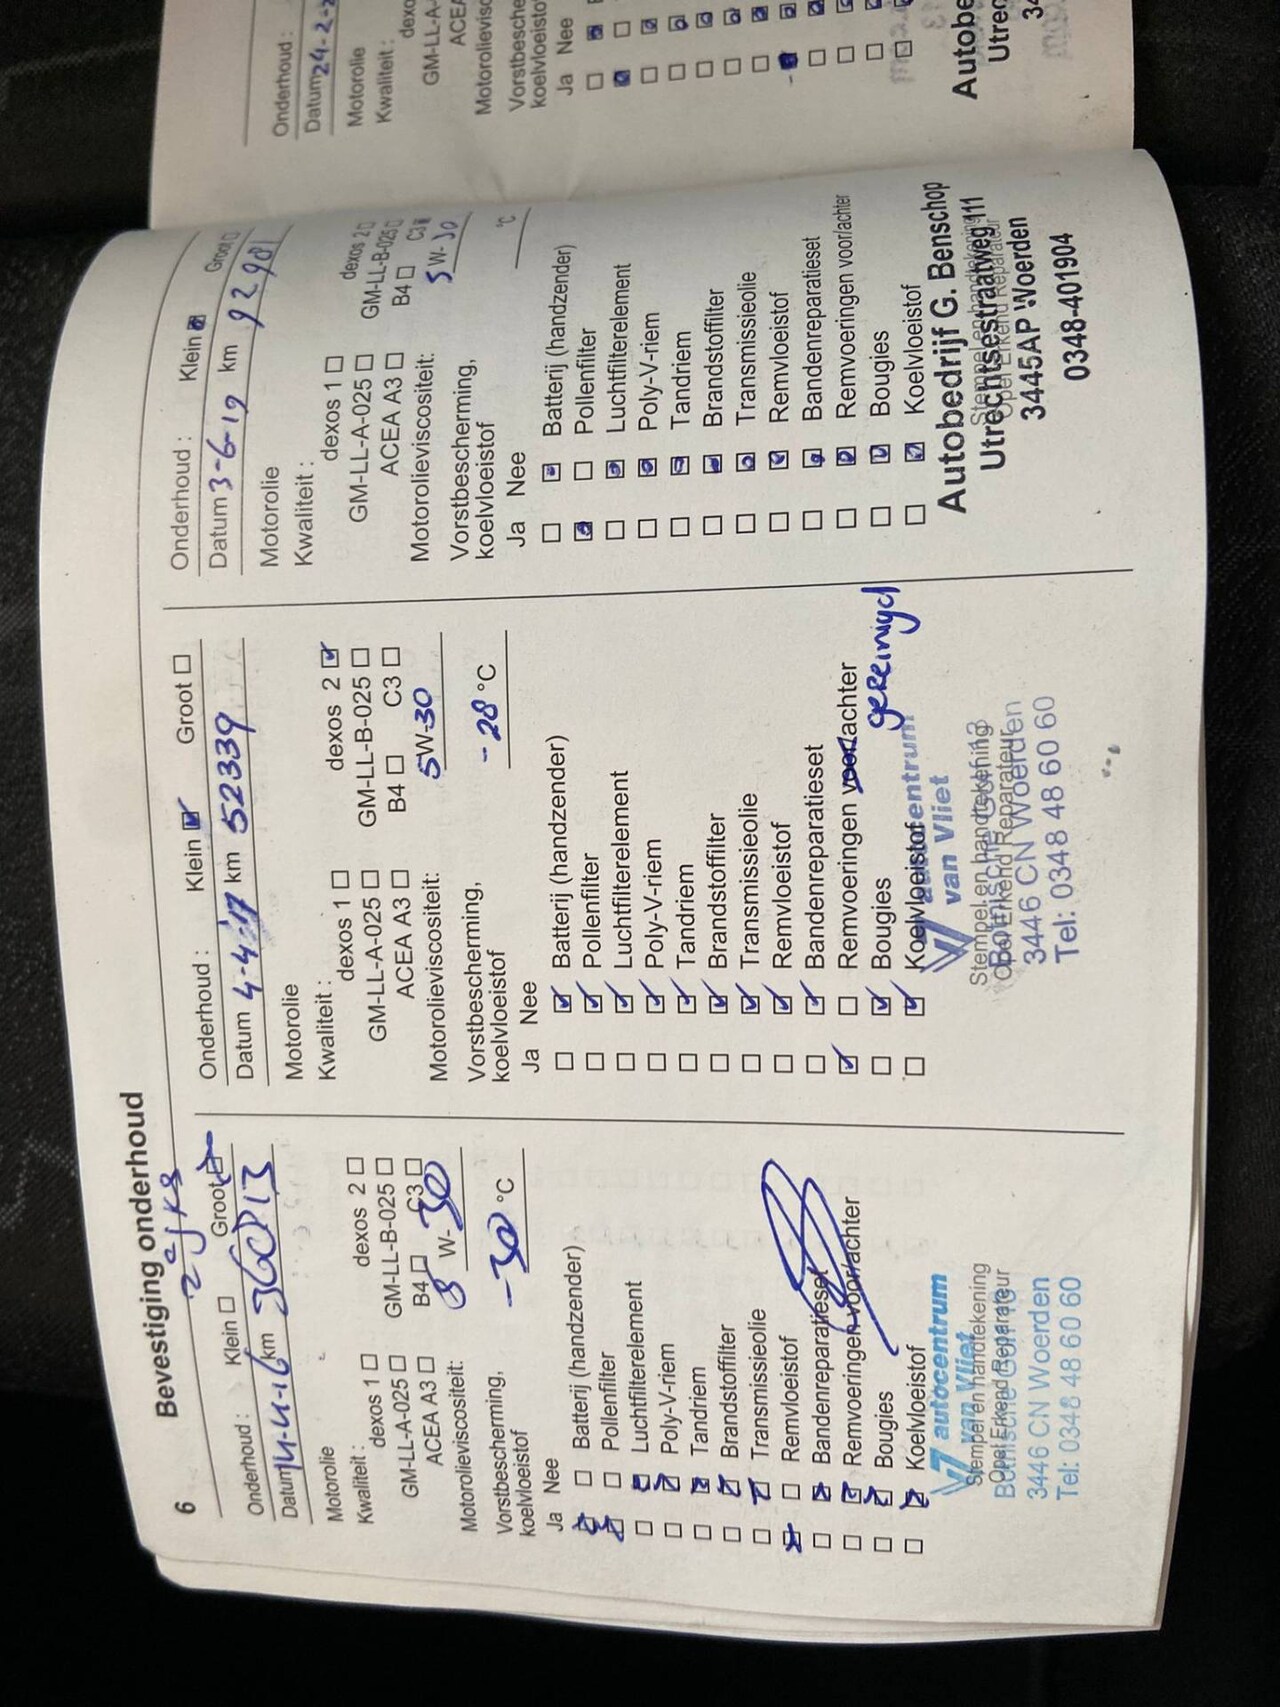 6 Bevestiging onderhoud
Onderhoud : Klein Groot
Datum 14-4-16 km 36013
Motorolie
Kwaliteit :
dexos 1 dexos 2
GM-LL-A-025 GM-LL-B-025
ACEA A3 B4 C3
Motorolieviscositeit: W- 30
Vorstbescherming,
koelvloeistof -30 °C
Ja Nee
Batterij (handzender)
Pollenfilter
Luchtfilterelement
Poly-V-riem
Tandriem
Brandstoffilter
Transmissieolie
Remvloeistof
Bandenreparatieset
Remvoeringen voor/achter
Bougies
Koelvloeistof
autocentrum
van Vliet
Stempel en handtekening
Opel Erkend Reparateur
3446 CN Woerden
Tel: 0348 48 60 60
Onderhoud : Klein Groot
Datum 4-4-'17 km 52339
Motorolie
Kwaliteit :
dexos 1 dexos 2
GM-LL-A-025 GM-LL-B-025
ACEA A3 B4 C3
Motorolieviscositeit: 5W-30
Vorstbescherming,
koelvloeistof -28 °C
Ja Nee
Batterij (handzender)
Pollenfilter
Luchtfilterelement
Poly-V-riem
Tandriem
Brandstoffilter
Transmissieolie
Remvloeistof
Bandenreparatieset
Remvoeringen voor/achter gereinigd
Bougies
Koelvloeistof
autocentrum
van Vliet
Stempel en handtekening
Opel Erkend Reparateur
3446 CN Woerden
Tel: 0348 48 60 60
Onderhoud : Klein Groot
Datum 3-6-19 km 92981
Motorolie
Kwaliteit :
dexos 1 dexos 2
GM-LL-A-025 GM-LL-B-025
ACEA A3 B4 C3
Motorolieviscositeit: 5W-30
Vorstbescherming,
koelvloeistof °C
Ja Nee
Batterij (handzender)
Pollenfilter
Luchtfilterelement
Poly-V-riem
Tandriem
Brandstoffilter
Transmissieolie
Remvloeistof
Bandenreparatieset
Remvoeringen voor/achter
Bougies
Koelvloeistof
Autobedrijf G. Benschop
Utrechtsestraatweg 111
Stempel en handtekening
Opel Erkend Reparateur
3445AP Woerden
0348-401904
Onderhoud :
Datum 24-2-2
Motorolie
Kwaliteit :
dexo
GM-LL-A-
ACEA
Motorolievisc
Vorstbesche
koelvloeistof
Ja Nee
Autobe
Utrec
34